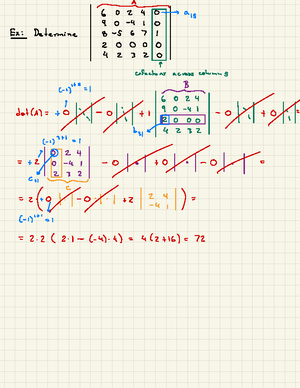 A
Ex: Determine
6 0 2 4 0 → a₁₅
9 0 -4 1 0
8 -5 6 7 1
2 0 0 0 0
4 2 3 2 0
cofactors across column 5
B
(-1)¹⁺⁵ = 1
det(A) = +0 | | - 0 | | + 1 | 6 0 2 4 | - 0 | | + 0 | | =
9 0 -4 1
2 0 0 0
4 2 3 2
b₃₁
(-1)³⁺¹ = 1
= +2 | 0 2 4 | - 0 | | + 0 | | - 0 | | =
0 -4 1
2 3 2
c₃₁
C
= 2 ( +0 | | - 0 | | + 2 | 2 4 | ) =
-4 1
(-1)¹⁺¹ = 1
= 2·2 ( 2·1 - (-4)·4 ) = 4 ( 2 + 16 ) = 72